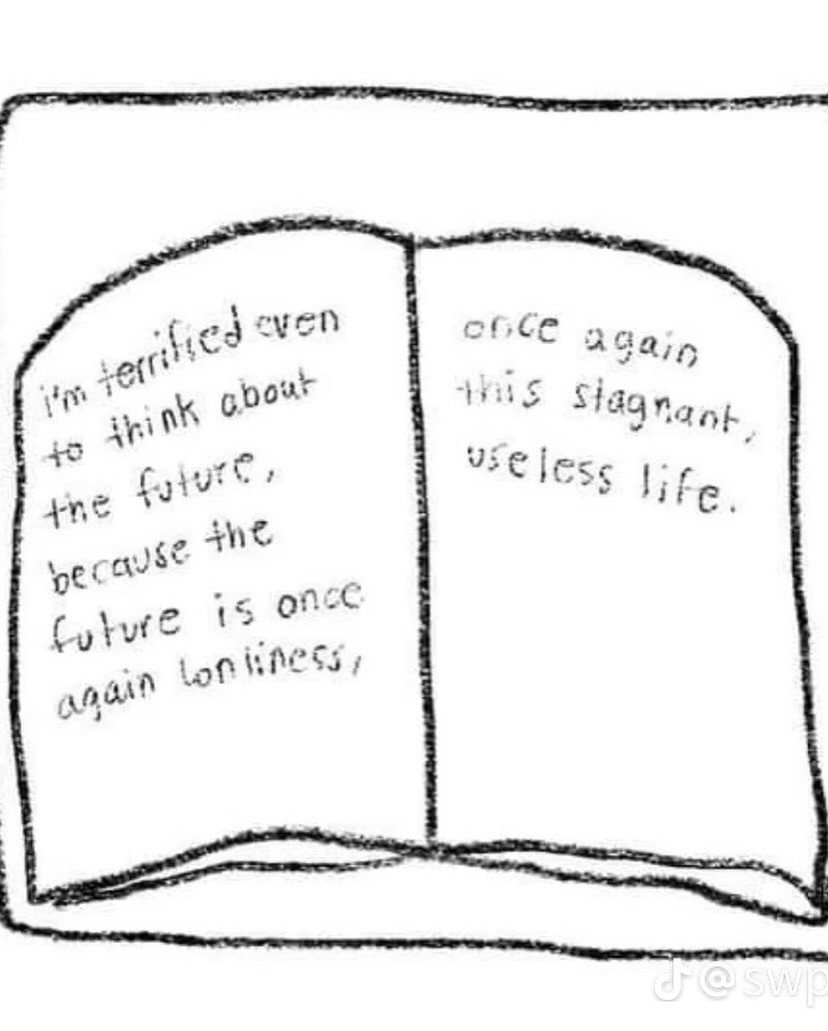 i'm terrified even
to think about
the future,
because the
future is once
again lonliness,
once again
this stagnant,
useless life.
@swp